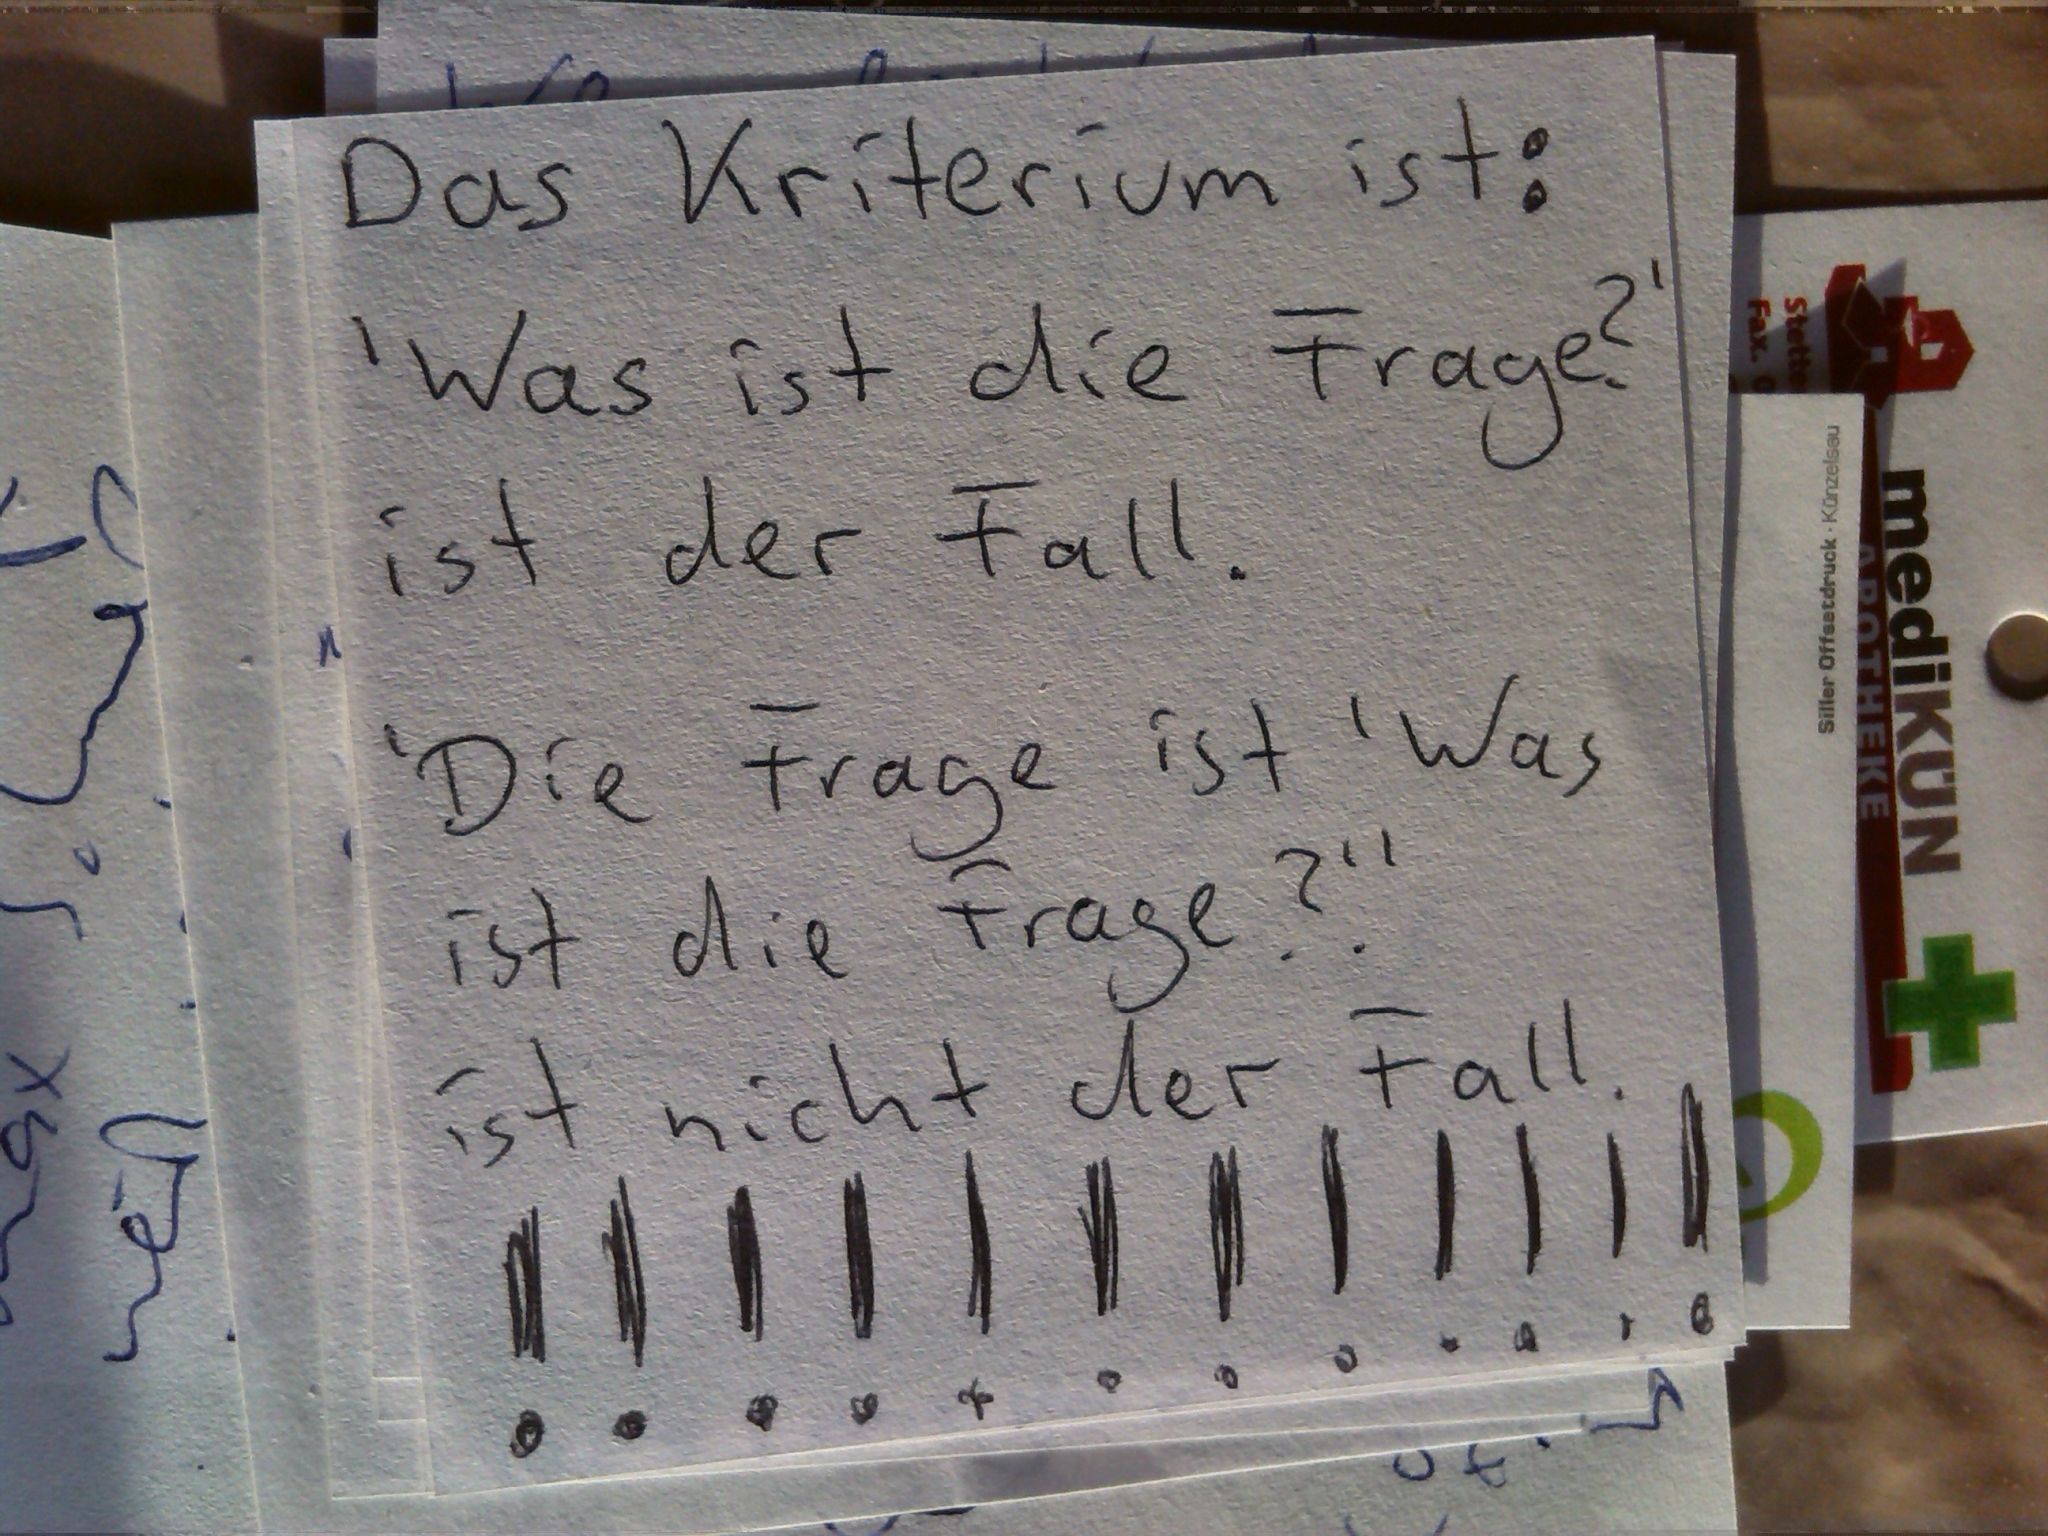 Das Kriterium ist:
'Was ist die Frage?'
ist der Fall.
'Die Frage ist 'Was
ist die Frage?''.
ist nicht der Fall.
! ! ! ! ! ! ! ! ! ! ! !
Stette
Fax. 0
mediKÜN
APOTHEKE
Siller Offsetdruck · Künzelsau